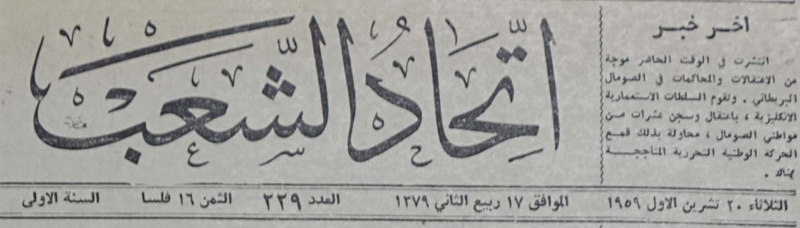 اتحاد الشعب
اخر خبر
انتشرت في الوقت الحاضر موجة
من الاعتقالات والمحاكمات في الصومال
البريطاني . وتقوم السلطات الاستعمارية
الانكليزية ، باعتقال وسجن عشرات من
مواطني الصومال ، محاولة بذلك قمع
الحركة الوطنية التحررية المتأججة
هناك .
الثلاثاء ٢٠ تشرين الاول ١٩٥٩ الموافق ١٧ ربيع الثاني ١٣٧٩ العدد ٢٢٩ الثمن ١٦ فلسا السنة الاولى